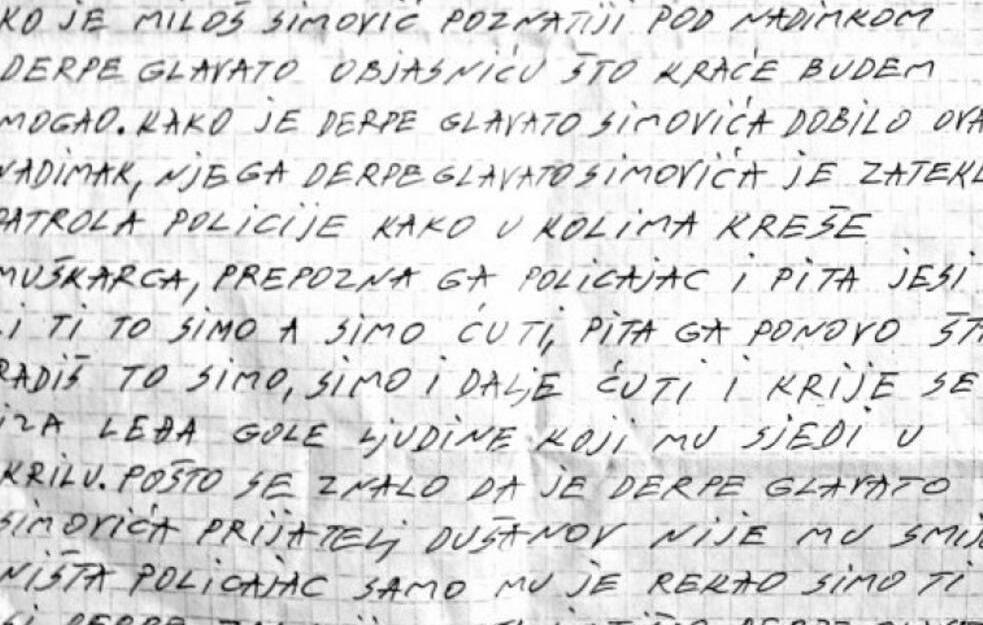 KO JE MILOŠ SIMOVIĆ POZNATIJI POD NADIMKOM
DERPE GLAVATO OBJASNIĆU ŠTO KRAĆE BUDEM
MOGAO. KAKO JE DERPE GLAVATO SIMOVIĆA DOBILO OVA
NADIMAK, NJEGA DERPE GLAVATO SIMOVIĆA JE ZATEKL
PATROLA POLICIJE KAKO U KOLIMA KREŠE
MUŠKARCA, PREPOZNA GA POLICAJAC I PITA JESI
LI TI TO SIMO A SIMO ĆUTI, PITA GA PONOVO ŠTA
RADIŠ TO SIMO, SIMO I DALJE ĆUTI I KRIJE SE
IZA LEĐA GOLE LJUDINE KOJI MU SJEDI U
KRILU. POŠTO SE ZNALO DA JE DERPE GLAVATO
SIMOVIĆA PRIJATELJ DUŠANOV NIJE MU SMIJ
NIŠTA POLICAJAC SAMO MU JE REKAO SIMO TI
SI DERPE